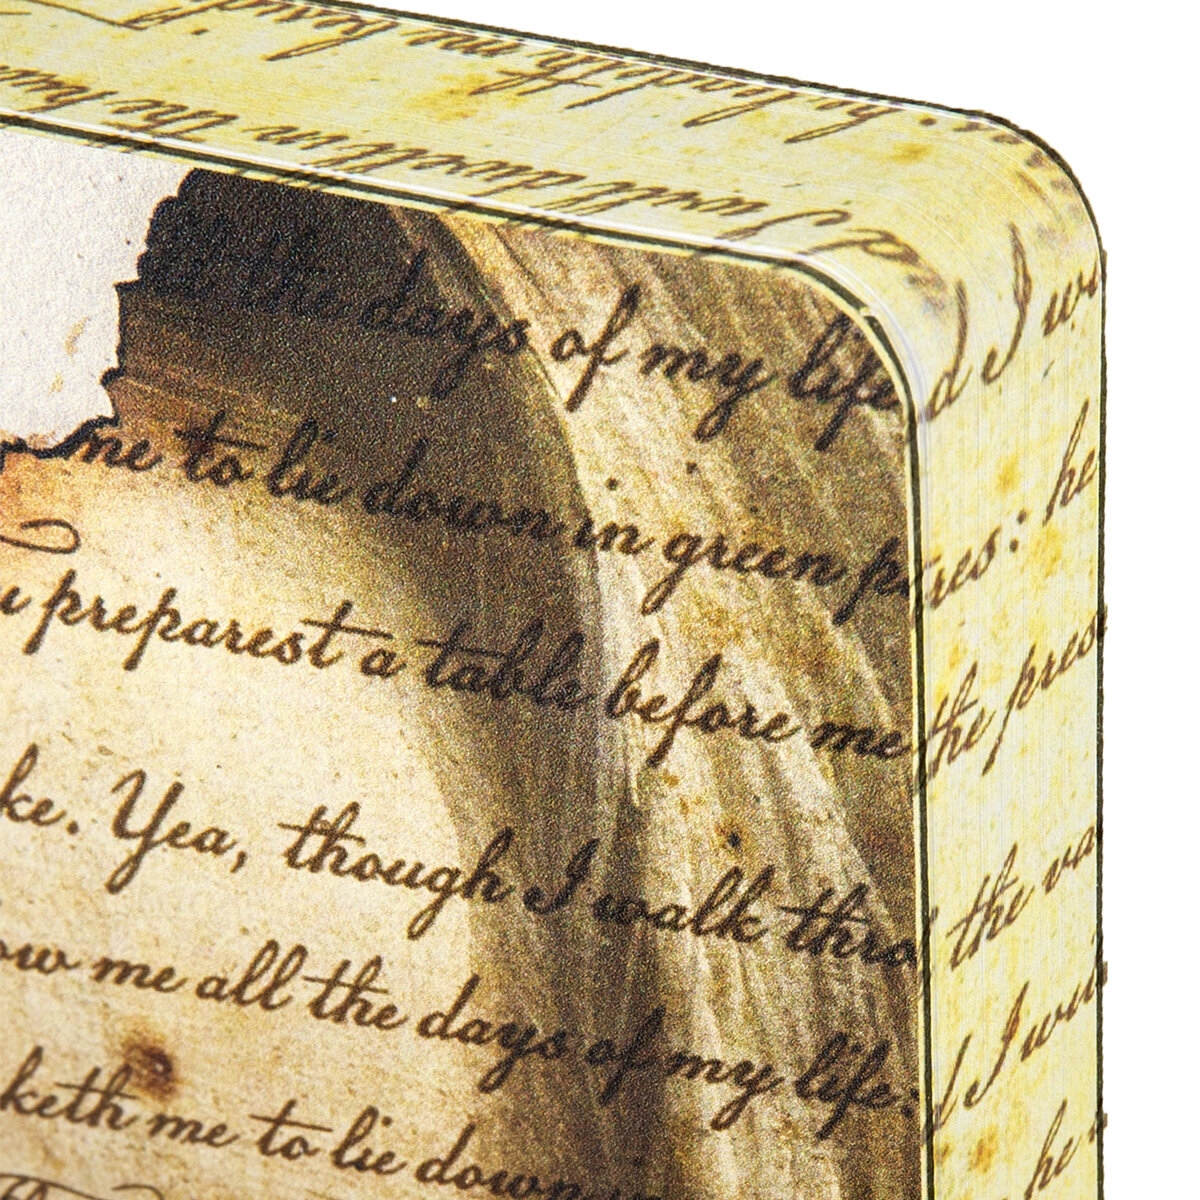 he leadeth me beside
I will dwell in the house
the days of my life
d I wi
me to lie down in green p
res: he
preparest a table before me
the pres
ke. Yea, though I walk thro
the va
ow me all the days of my life.
d I will
keth me to lie down in
he